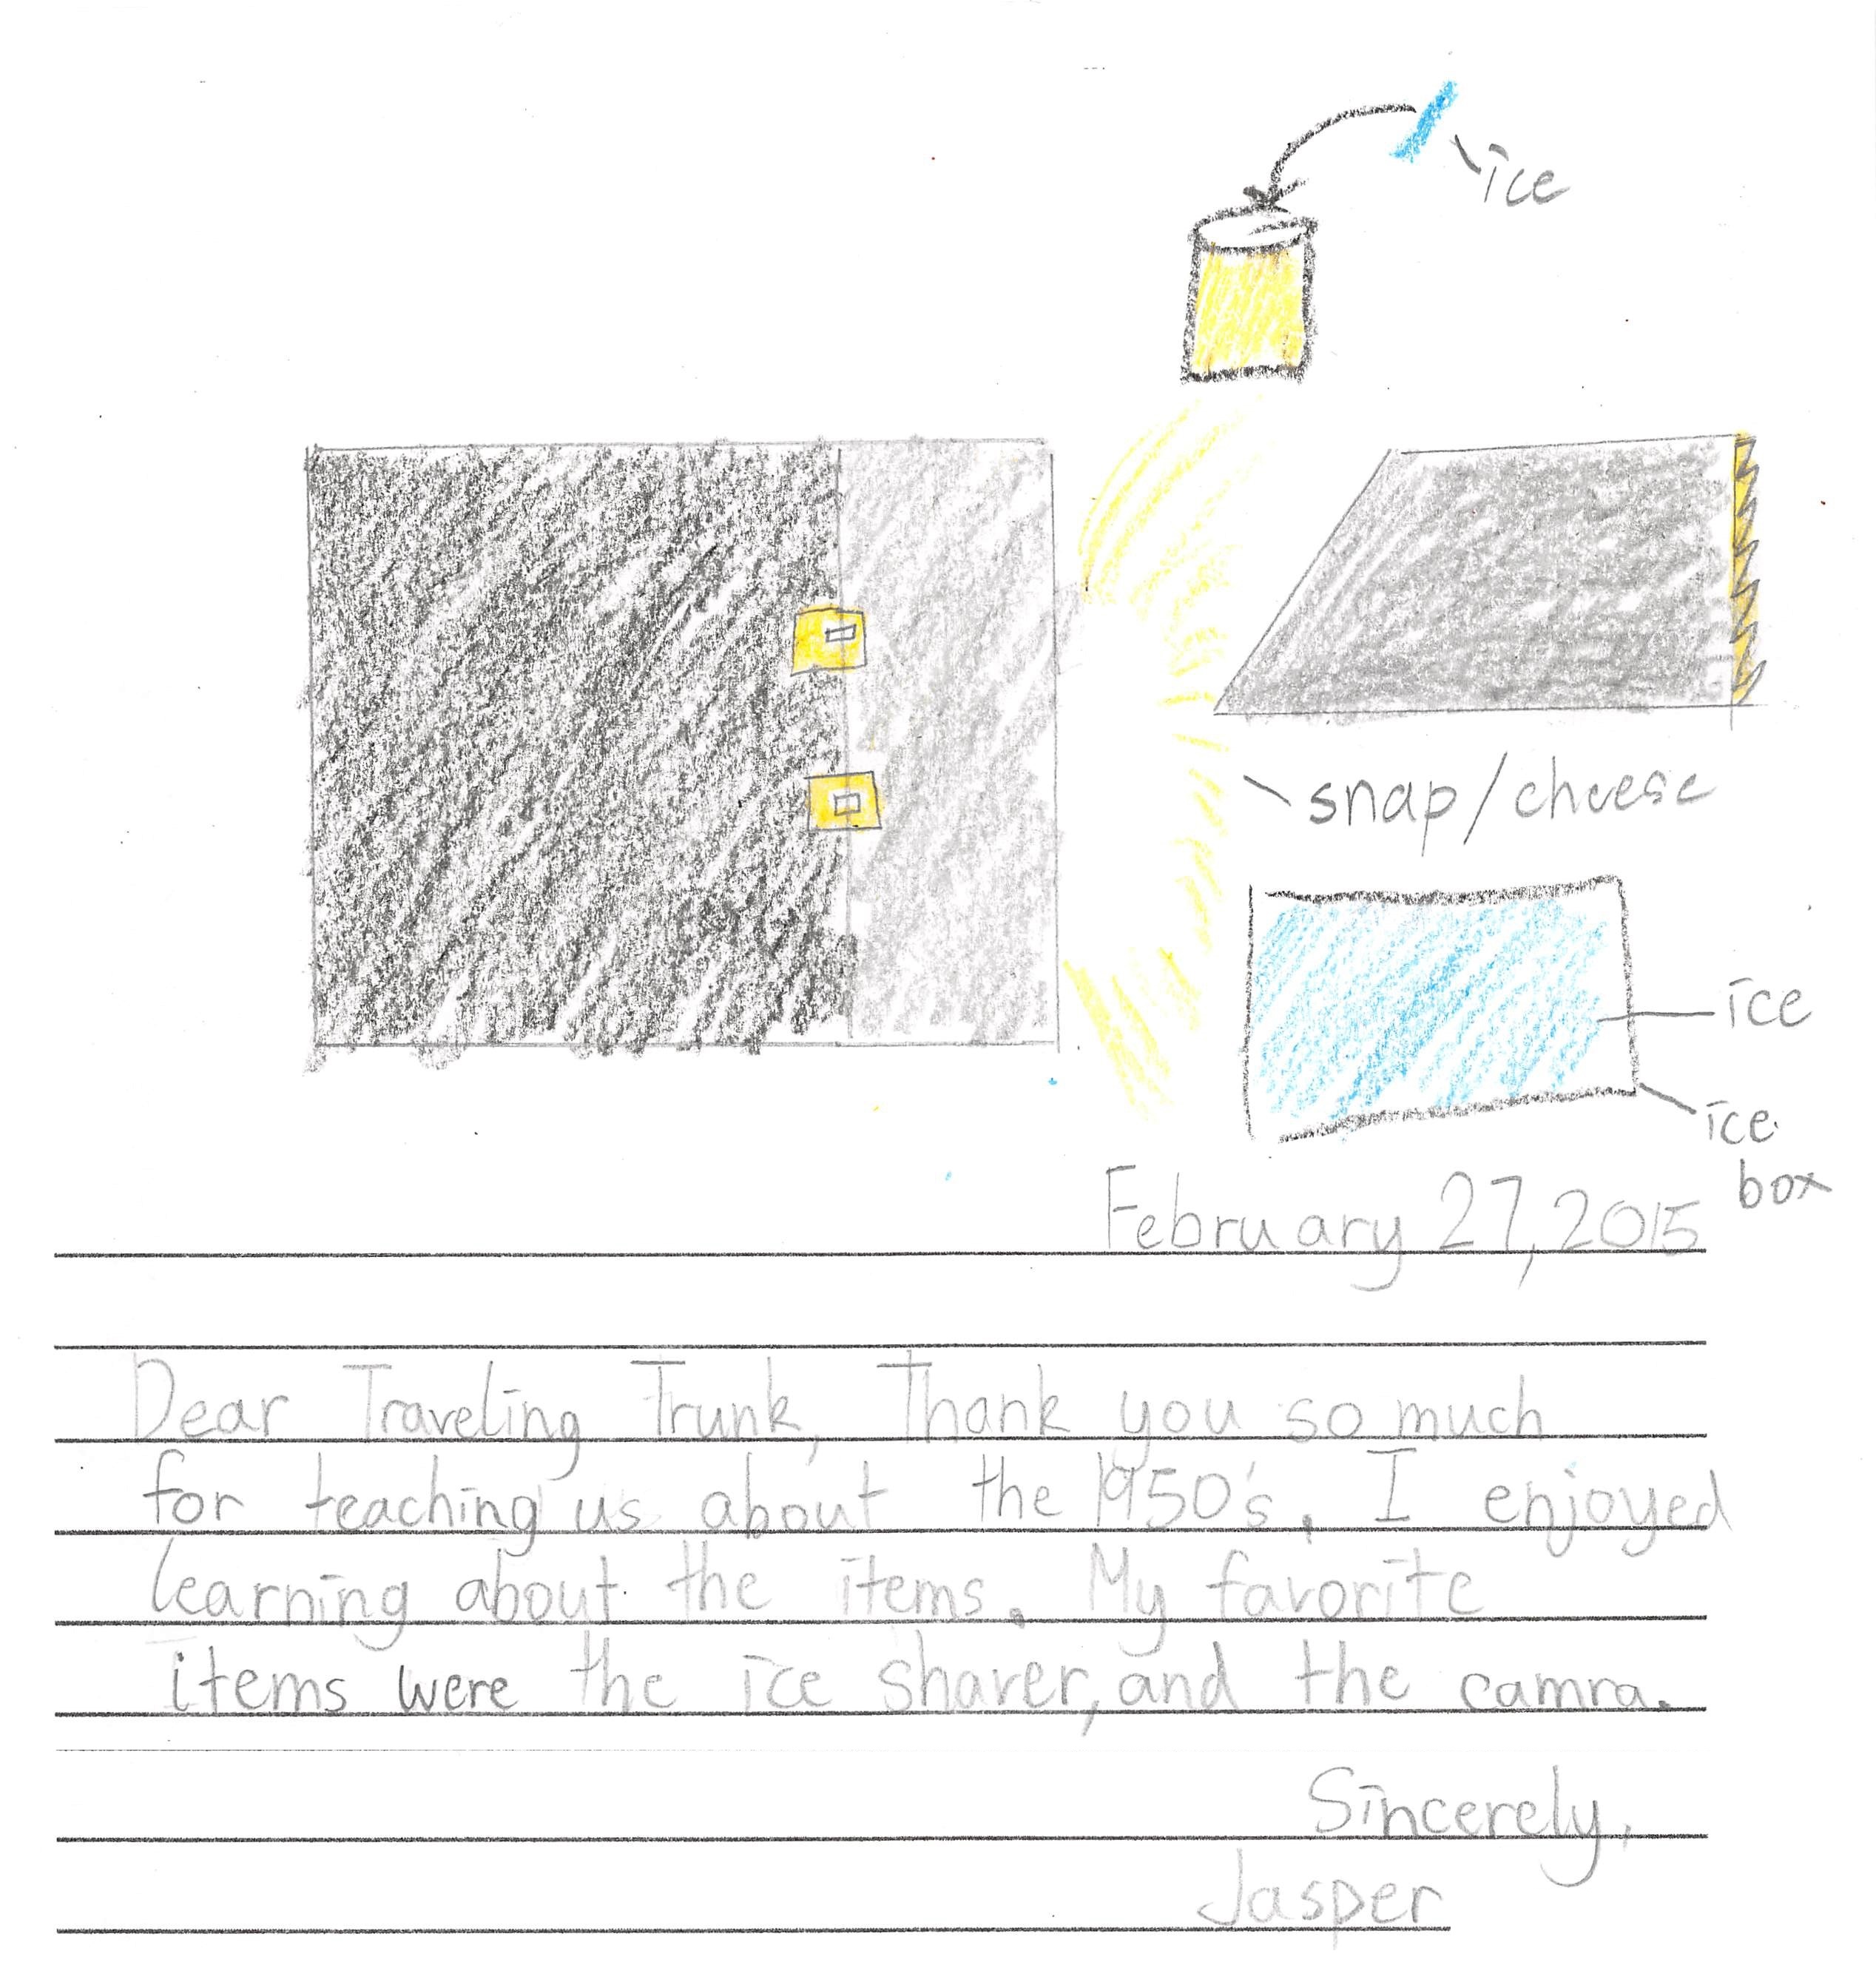 ice
snap/cheese
ice
ice
box
February 27, 2015
Dear Traveling Trunk, Thank you so much
for teaching us about the 1950's. I enjoyed
learning about the items. My favorite
items were the ice shaver, and the camra.
Sincerely,
Jasper